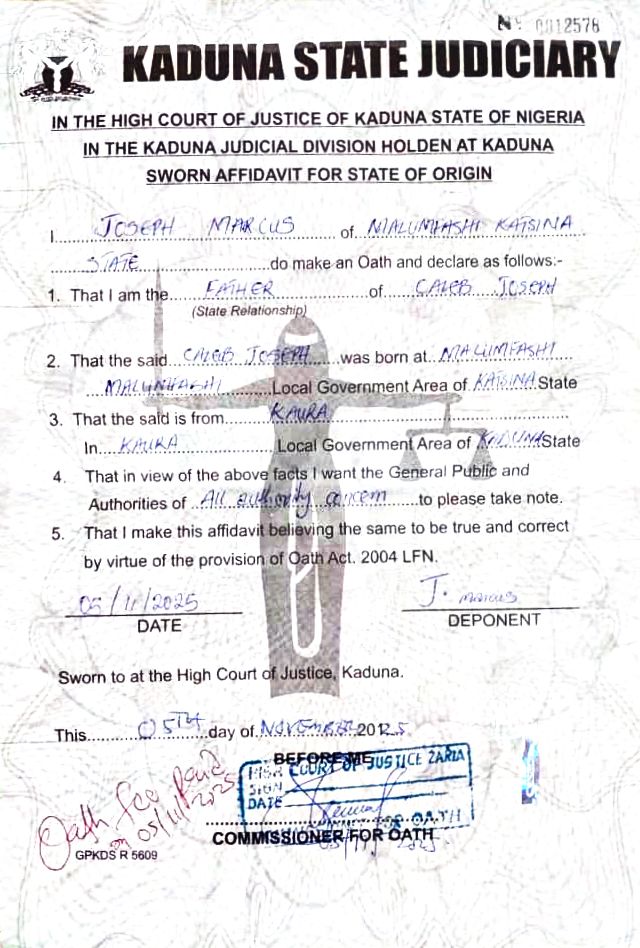 Nº 0012578
KADUNA STATE JUDICIARY
IN THE HIGH COURT OF JUSTICE OF KADUNA STATE OF NIGERIA
IN THE KADUNA JUDICIAL DIVISION HOLDEN AT KADUNA
SWORN AFFIDAVIT FOR STATE OF ORIGIN
I JOSEPH MARCUS of MALUMFASHI KATSINA
STATE do make an Oath and declare as follows:-
1. That I am the FATHER of CALEB JOSEPH
(State Relationship)
2. That the said CALEB JOSEPH was born at MALUMFASHI
MALUMFASHI Local Government Area of KATSINA State
3. That the said is from KAURA
In KAURA Local Government Area of KADUNA State
4. That in view of the above facts I want the General Public and
Authorities of All authority concern to please take note.
5. That I make this affidavit believing the same to be true and correct
by virtue of the provision of Oath Act. 2004 LFN.
05/11/2025 J. marcus
DATE DEPONENT
Sworn to at the High Court of Justice, Kaduna.
This 05th day of NOVEMBER 2025
BEFORE ME
HIGH COURT OF JUSTICE ZARIA
SIGN
DATE
FOR OATH
COMMISSIONER FOR OATH
Oath fee paid
on 05/11/2025
GPKDS R 5609